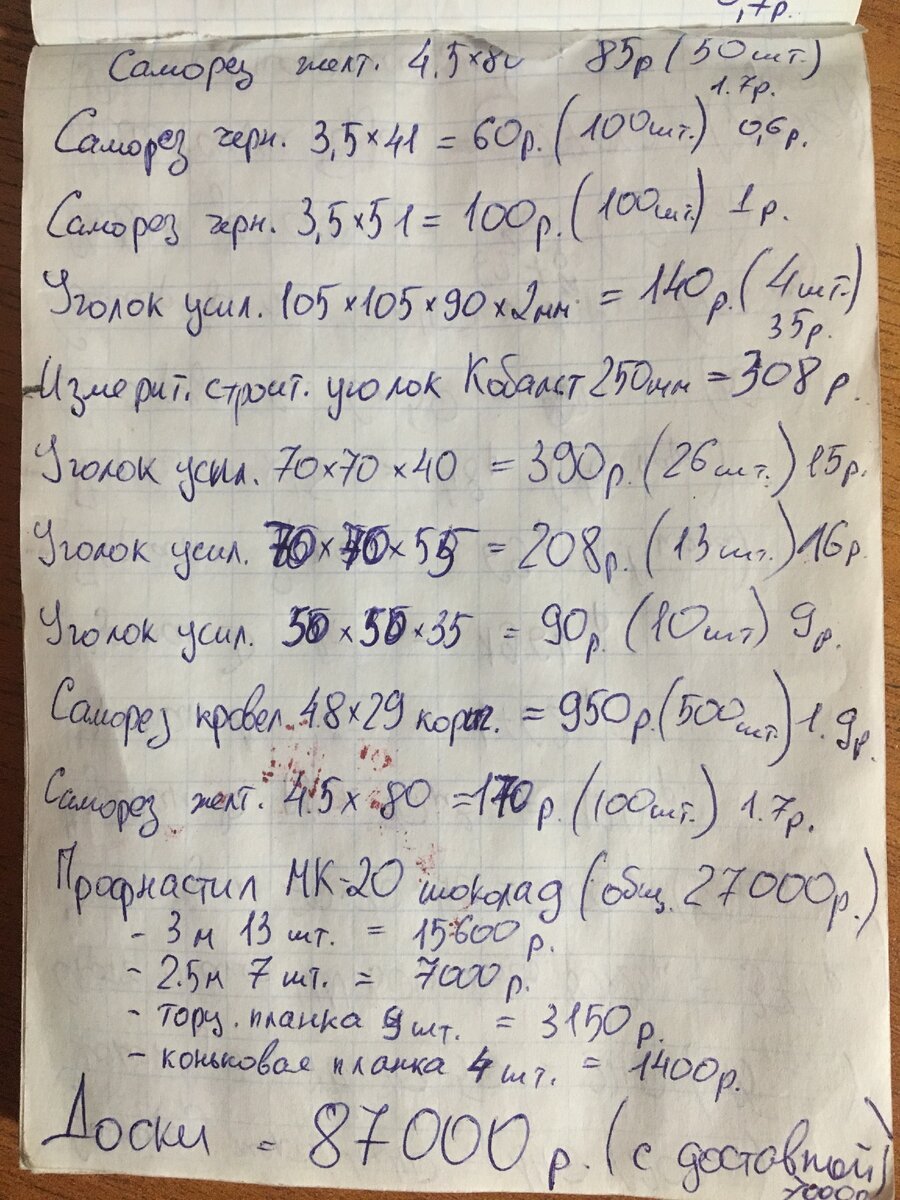 0,7р.
Саморез желт. 4.5×80 85р (50шт.)
1.7р.
Саморез черн. 3,5×41 = 60р. (100шт.) 0,6р.
Саморез черн. 3,5×51 = 100р. (100шт) 1р.
Уголок усил. 105×105×90×2мм = 140р. (4шт.)
35р.
Измерит. строит. уголок Кобальт 250мм = 308р.
Уголок усил. 70×70×40 = 390р. (26шт.) 15р.
Уголок усил. 70×70×55 = 208р. (13шт.) 16р.
Уголок усил. 50×50×35 = 90р. (10шт) 9р.
Саморез кровел. 4.8×29 = 950р. (500шт.) 1.9р.
Саморез желт. 4.5×80 = 170р. (100шт.) 1.7р.
Профнастил МК-20 шоколад (общ. 27000р.)
- 3м 13шт. = 15600р.
- 2.5м 7шт. = 7000р.
- торц. планка 9шт. = 3150р.
- коньковая планка 4шт. = 1400р.
Доски = 87000р. (с доставкой)